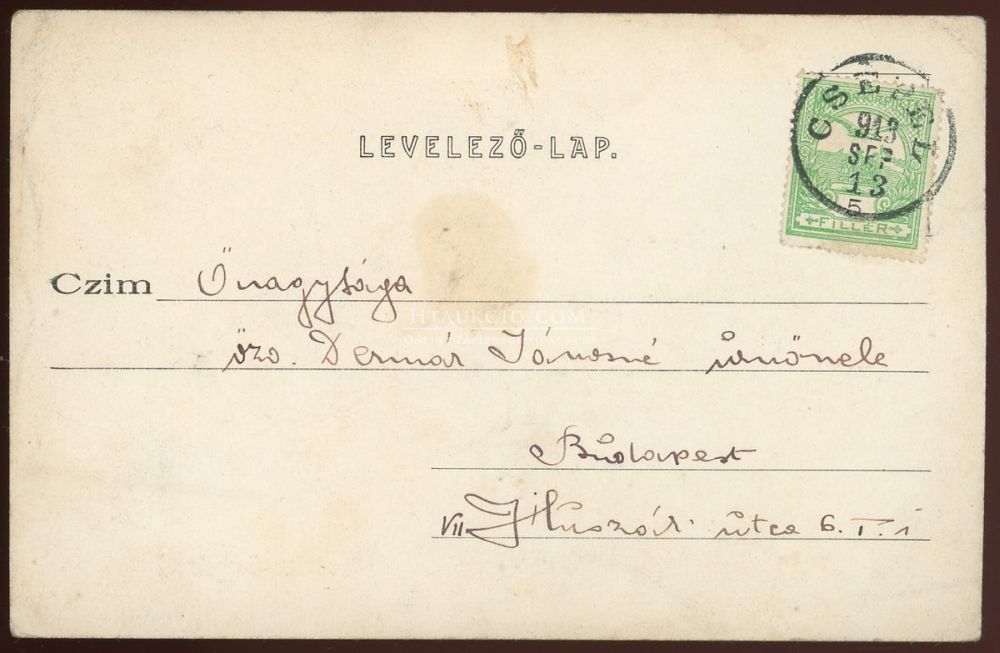 LEVELEZŐ-LAP.
CSEPEL
913
SEP
13
5
FILLÉR
Czim Őnagysága
HTAUKCIO.COM
özv. Dermár Jánosné úrnőnek
Budapest
VII Huszár utca 6. I. 1